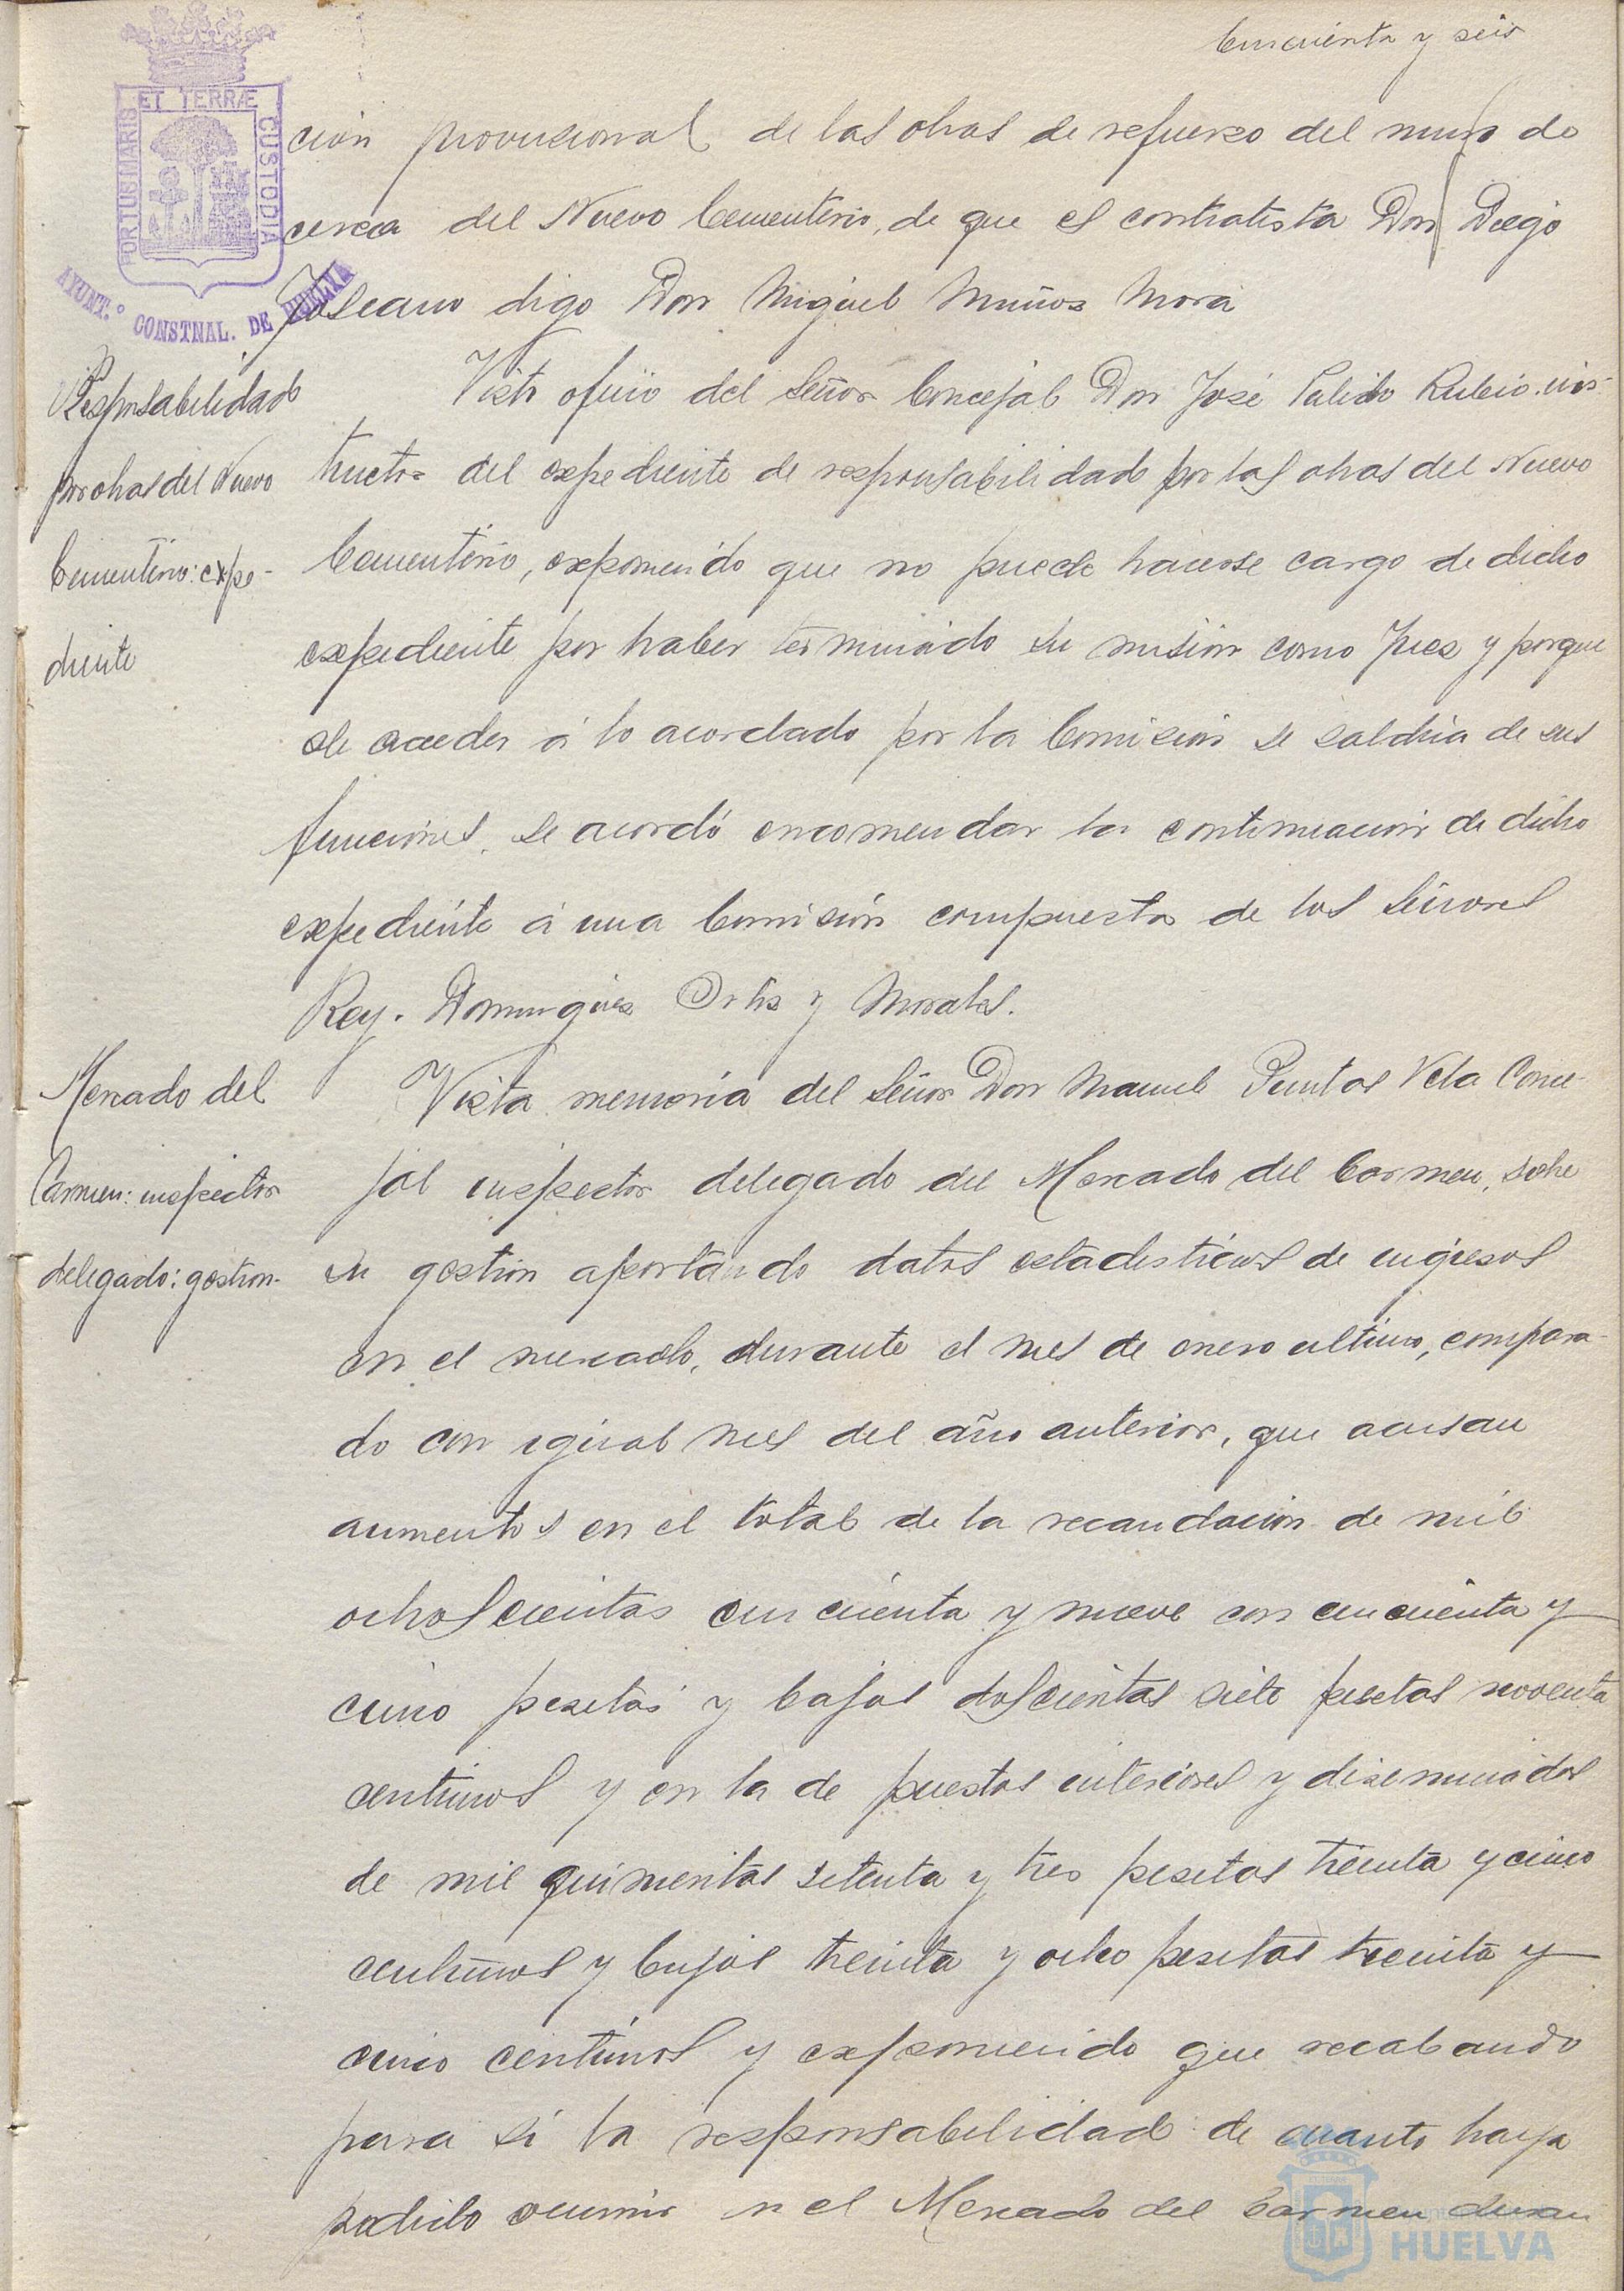 Cincuenta y seis
PORTUS MARIS ET TERRÆ CUSTODIA
AYUNT.º CONSTNAL. DE HUELVA
ción provisional de las obras de refuerzo del muro de
cerca del Nuevo Cementerio, de que es contratista Don Diego
Toscano digo Don Miguel Muñoz Mora
Responsabilidad
por obras del Nuevo
Cementerio: expe-
diente
Visto oficio del Señor Concejal Don José Pulido Rubio, ins-
tructor del expediente de responsabilidad por las obras del Nuevo
Cementerio, exponiendo que no puede hacerse cargo de dicho
expediente por haber terminado su misión como Juez y porque
de acceder á lo acordado por la Comisión se saldría de sus
funciones, se acordó encomendar la continuación de dicho
expediente á una Comisión compuesta de los Señores
Rey, Dominguez Ortiz y Morales.
Mercado del
Carmen: inspector
delegado: gestion.
Vista memoria del Señor Don Manuel Puntas Vela Conce-
jal inspector delegado del Mercado del Carmen, sobre
su gestion aportando datos estadisticos de ingresos
en el mercado, durante el mes de enero ultimo, compara-
do con igual mes del año anterior, que acusan
aumentos en el total de la recaudacion de mil
ochoscientas cincuenta y nueve con cincuenta y
cinco pesetas y bajas doscientas siete pesetas noventa
centimos y en la de puestos interiores y diseminados
de mil quinientas setenta y tres pesetas treinta y cinco
centimos y bajas treinta y ocho pesetas treinta y
cinco centimos y exponiendo que recabando
para sí la responsabilidad de cuanto haya
podido ocurrir en el Mercado del Carmen duran
HUELVA